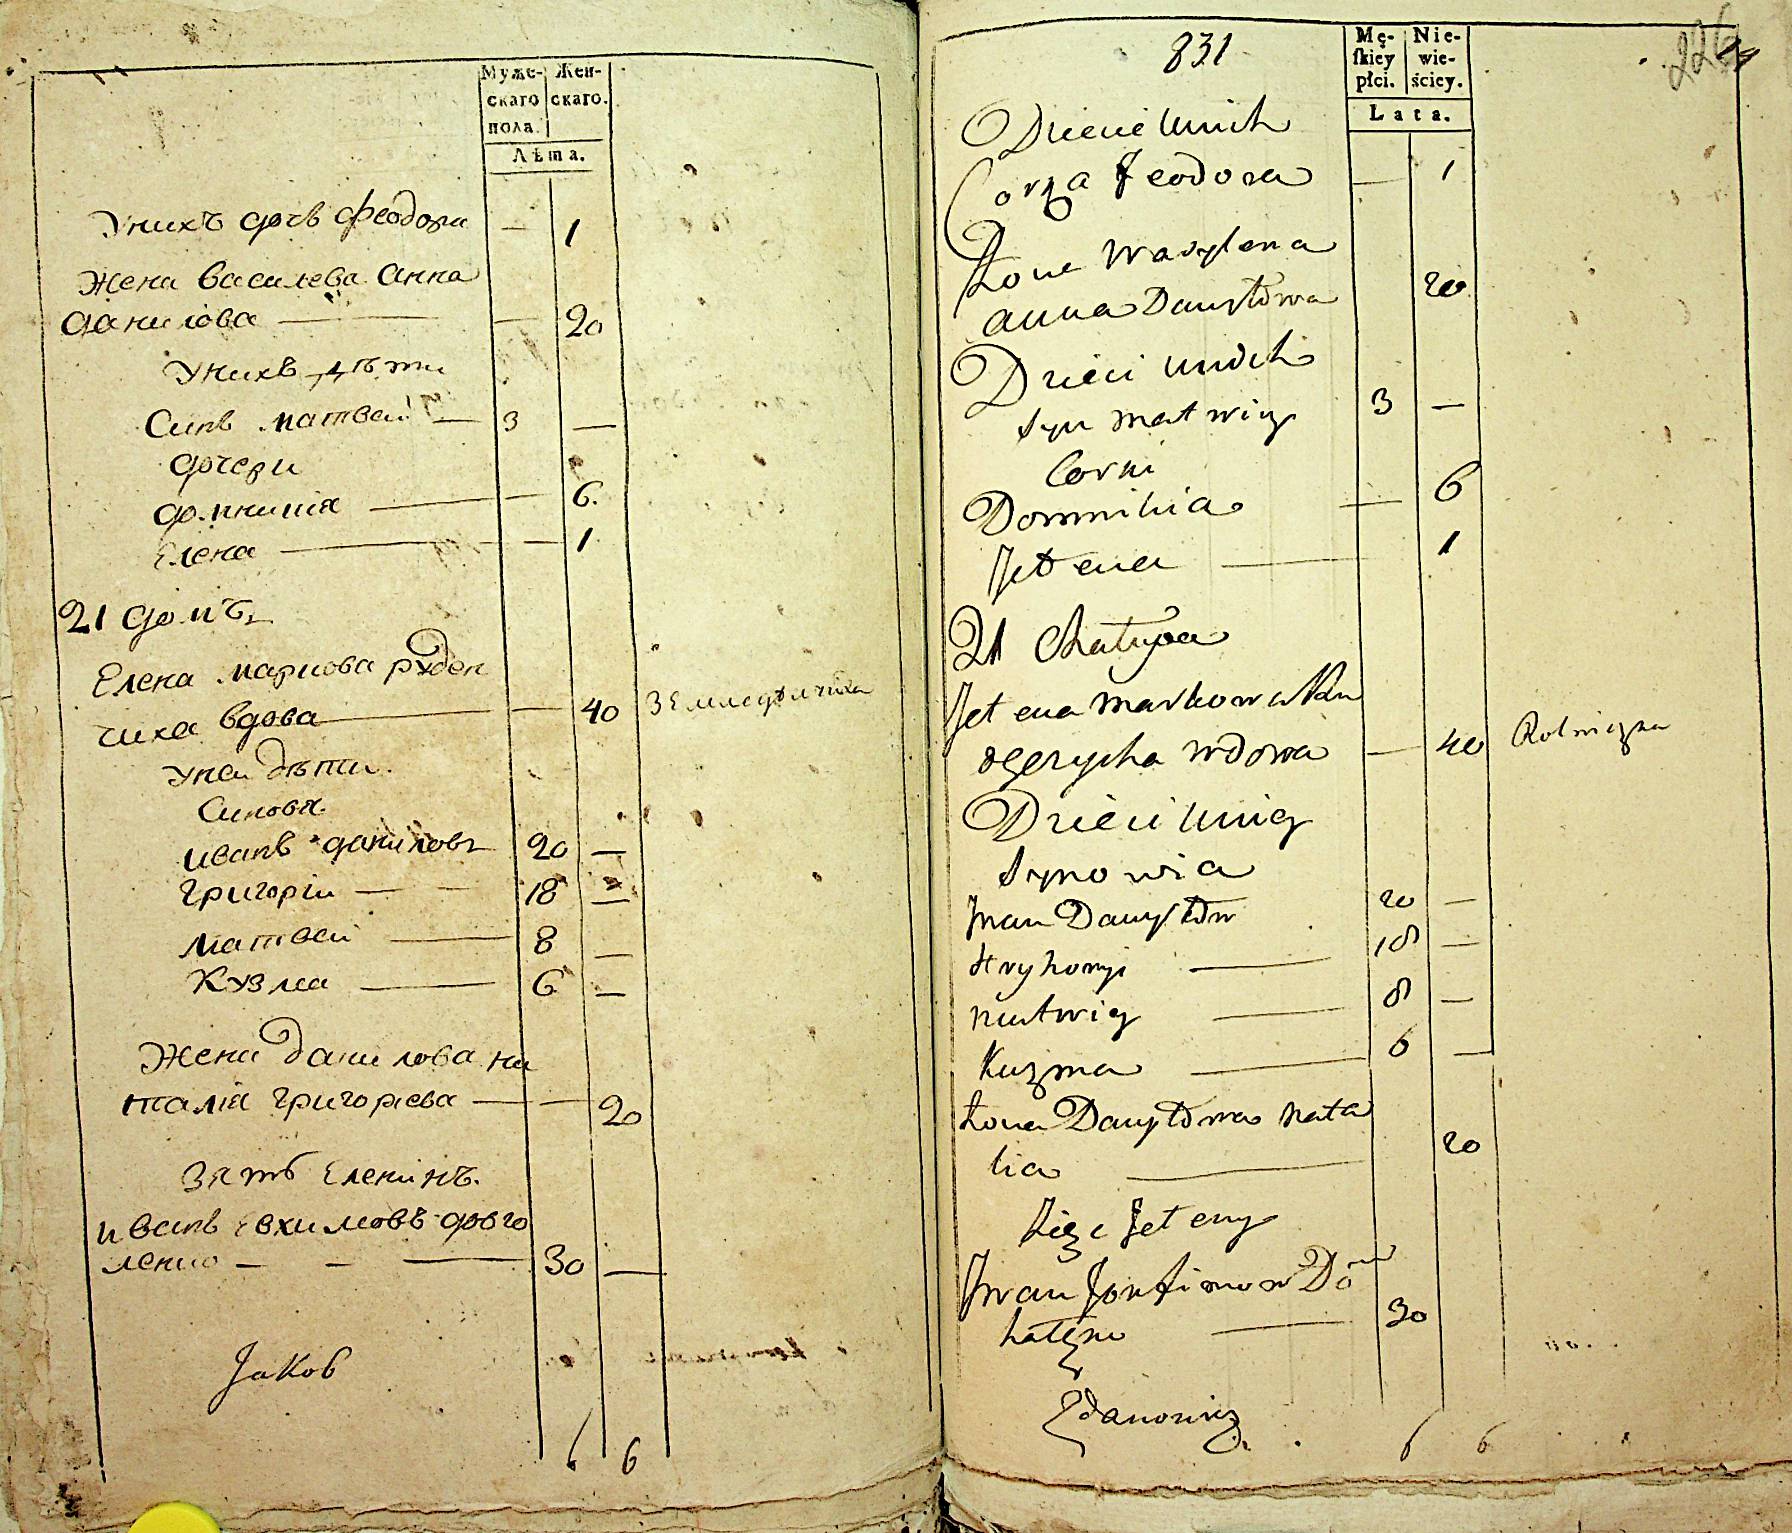 Муже-
скаго
пола.
Жен-
скаго.
Лѣта.
Унихъ дочь Феодора — 1
Жена Василева Анна
Данилова — — 20
Унихъ дѣти
Синъ Матвей — 3 —
дочери
домникія — — 6.
Елена — — 1
21 домъ
Елена Маркова Руден
чиха вдова — — 40 Земледѣлчиха
Унеи дѣти.
Синовя.
Иванъ Даниловъ 20 —
Григорій — 18 —
Матвей — 8 —
Кузма — 6 —
Жена Данилова На
талія Григорієва — — 20
Зять Еленинъ.
Иванъ Евхимовъ Довго
ленко — — — 30 —
Jakob
6 6
831
226
Mę-
skiey
płci.
Nie-
wie-
ściey.
Lata.
Dziecie Unich
Corka Feodora — 1
Żona Wasylowa
Anna Danyłowa 20
Dzieci Unich
Syn Matwiy 3 —
Corki
Domnikia — 6
Jełena — 1
21 Chałupa
Jełena Markowa Ru
dczycha wdowa — 40 Rolniczka
Dzieci Uniey
Synowia
Iwan Danyłow 20 —
Hryhoryi — 18 —
Matwiy — 8 —
Kuzma — 6 —
Żona Danyłowa Nata
lia — 20
Zięc Jełeny
Iwan Jowfimow Do
hałenko — 30
Zdanowicz.
6 6